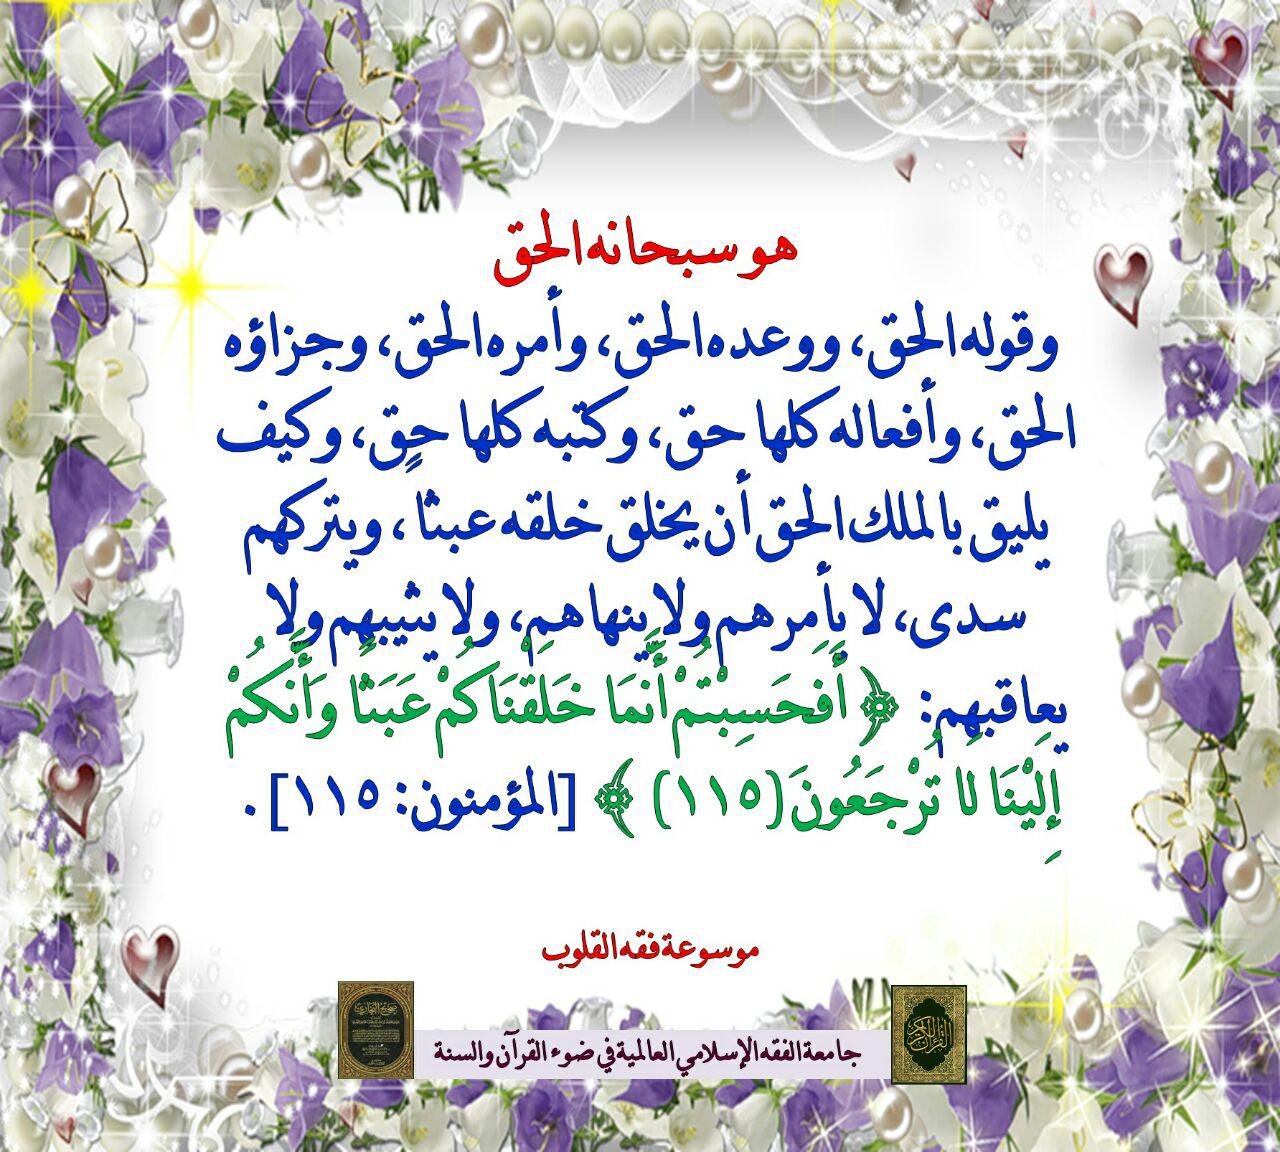 هو سبحانه الحق
وقوله الحق، ووعده الحق، وأمره الحق، وجزاؤه
الحق، وأفعاله كلها حق، وكتبه كلها حق، وكيف
يليق بالملك الحق أن يخلق خلقه عبثا، ويتركهم
سدى، لا يأمرهم ولا ينهاهم، ولا يثيبهم ولا
يعاقبهم: ﴿ أَفَحَسِبْتُمْ أَنَّمَا خَلَقْنَاكُمْ عَبَثًا وَأَنَّكُمْ
إِلَيْنَا لا تُرْجَعُونَ (١١٥) ﴾ [المؤمنون: ١١٥].
موسوعة فقه القلوب
صحيح البخاري
القرآن الكريم
جامعة الفقه الإسلامي العالمية في ضوء القرآن والسنة